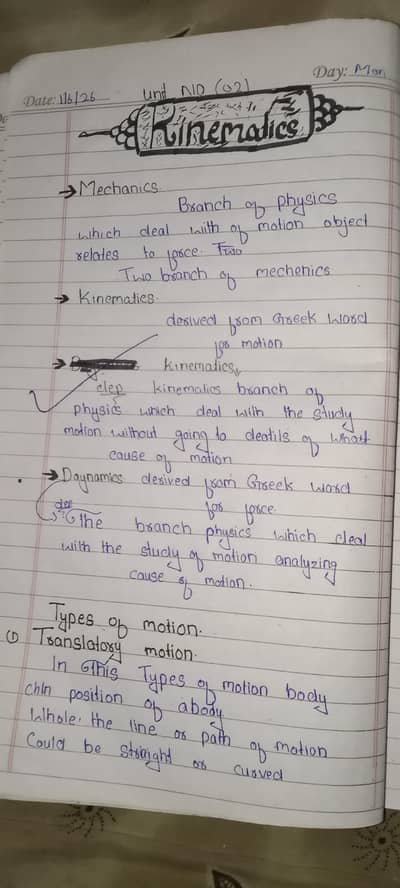 Day: Mon
Date: 1/6/26
Unit NO (02)
Kinematics
→ Mechanics
Branch of physics
which deal with of motion object
relates to force. Two
Two branch of mechenics
→ Kinematics.
desived from Greek word
for motion
→ Kinematics
kinematics branch of
physics which deal with the study
motion without going to deatils of what
cause of motion
→ Daynamics desived from Greek word
for force
def The branch physics which deal
with the study of motion analyzing
cause of motion.
Types of motion.
(1) Translatory motion.
In this Types of motion body
position of abody
Whole. the line or path of motion
Could be straight or curved